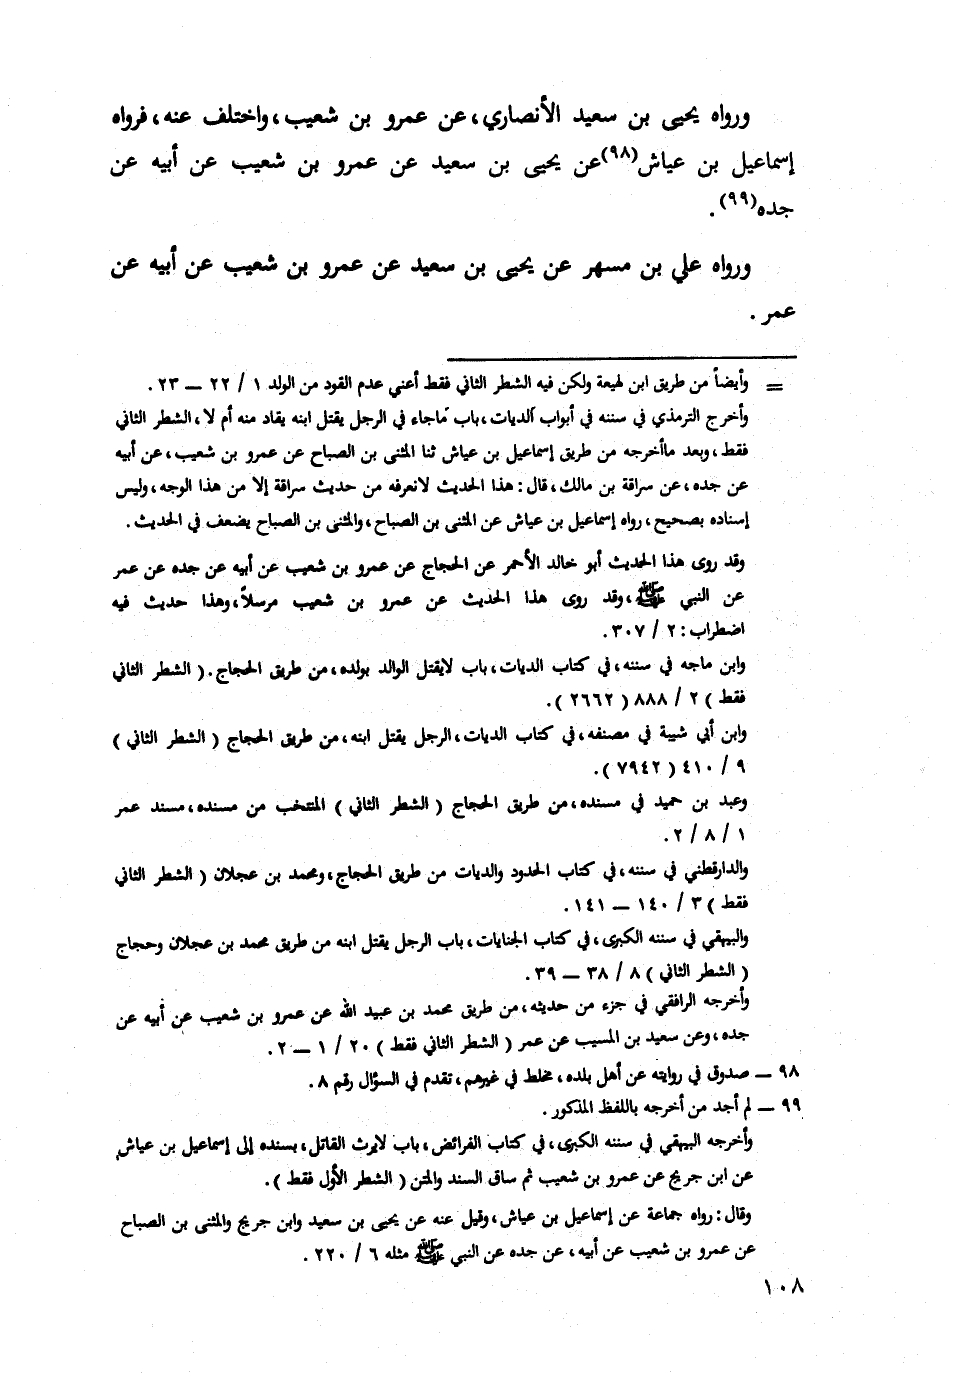 ورواه يحيى بن سعيد الأنصاري، عن عمرو بن شعيب، واختلف عنه، فرواه
إسماعيل بن عياش(٩٨) عن يحيى بن سعيد عن عمرو بن شعيب عن أبيه عن
جده(٩٩).
ورواه علي بن مسهر عن يحيى بن سعيد عن عمرو بن شعيب عن أبيه عن
عمر.
= وأيضاً من طريق ابن لهيعة ولكن فيه الشطر الثاني فقط أعني عدم القود من الولد ١ / ٢٢ — ٢٣.
وأخرج الترمذي في سننه في أبواب الديات، باب ماجاء في الرجل يقتل ابنه يقاد منه أم لا، الشطر الثاني
فقط، وبعد ماأخرجه من طريق إسماعيل بن عياش ثنا المثنى بن الصباح عن عمرو بن شعيب، عن أبيه
عن جده، عن سراقة بن مالك، قال: هذا الحديث لانعرفه من حديث سراقة إلا من هذا الوجه، وليس
إسناده بصحيح، رواه إسماعيل بن عياش عن المثنى بن الصباح، والمثنى بن الصباح يضعف في الحديث.
وقد روى هذا الحديث أبو خالد الأحمر عن الحجاج عن عمرو بن شعيب عن أبيه عن جده عن عمر
عن النبي ﷺ، وقد روى هذا الحديث عن عمرو بن شعيب مرسلاً، وهذا حديث فيه
اضطراب: ٢ / ٣٠٧.
وابن ماجه في سننه، في كتاب الديات، باب لايقتل الوالد بولده، من طريق الحجاج. ( الشطر الثاني
فقط ) ٢ / ٨٨٨ ( ٢٦٦٢ ).
وابن أبي شيبة في مصنفه، في كتاب الديات، الرجل يقتل ابنه، من طريق الحجاج ( الشطر الثاني )
٩ / ٤١٠ ( ٧٩٤٢ ).
وعبد بن حميد في مسنده، من طريق الحجاج ( الشطر الثاني ) المنتخب من مسنده، مسند عمر
١ / ٨ / ٢.
والدارقطني في سننه، في كتاب الحدود والديات من طريق الحجاج، ومحمد بن عجلان ( الشطر الثاني
فقط ) ٣ / ١٤٠ — ١٤١.
والبيهقي في سننه الكبرى، في كتاب الجنايات، باب الرجل يقتل ابنه من طريق محمد بن عجلان وحجاج
( الشطر الثاني ) ٨ / ٣٨ — ٣٩.
وأخرجه الرافقي في جزء من حديثه، من طريق محمد بن عبيد الله عن عمرو بن شعيب عن أبيه عن
جده، وعن سعيد بن المسيب عن عمر ( الشطر الثاني فقط ) ٢٠ / ١ — ٢.
٩٨ — صدوق في روايته عن أهل بلده، مخلط في غيرهم، تقدم في السؤال رقم ٨.
٩٩ — لم أجد من أخرجه باللفظ المذكور.
وأخرجه البيهقي في سننه الكبرى، في كتاب الفرائض، باب لايرث القاتل، بسنده إلى إسماعيل بن عياش
عن ابن جريج عن عمرو بن شعيب ثم ساق السند والمتن ( الشطر الأول فقط ).
وقال: رواه جماعة عن إسماعيل بن عياش، وقيل عنه عن يحيى بن سعيد وابن جريج والمثنى بن الصباح
عن عمرو بن شعيب عن أبيه، عن جده عن النبي ﷺ مثله ٦ / ٢٢٠.
١٠٨